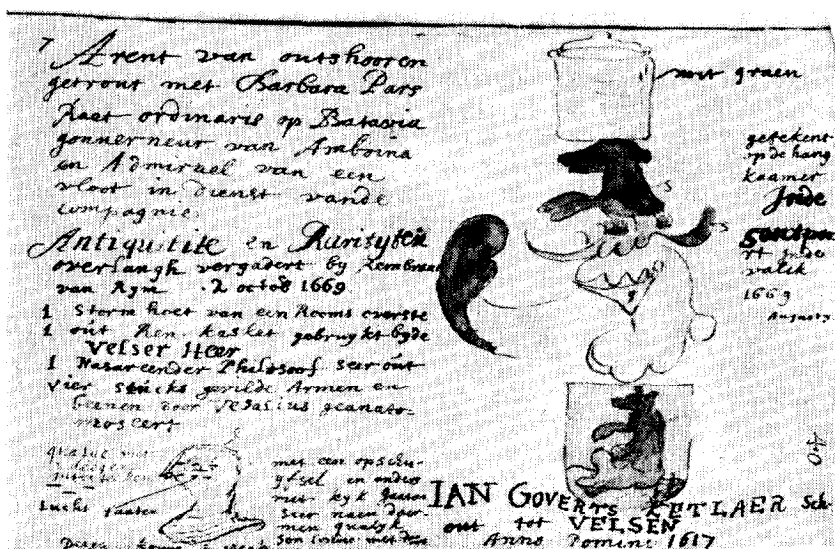 7
Arent van outshooren
getrout met Barbara Pars
Raet ordinaris op Batavia
gouverneur van Amboina
en Admirael van een
vloot in dienst vande
Compagnie
Antiquitite en Rarityten
overlangh vergadert by Rembrant
van Ryn . 2 octob 1669
1 storm hoet van een Rooms overste
1 out Ren kasket gebruykt byde
Velser Heer
1 Philosoof seer out
vier stucks gevilde Armen en
beenen door Vesalius geanato-
moseert
met een opschu-
en anders
met
men qualyk
Desen
root graen
getekent
op de hang
kaamer
Inde
rt inde
valck
1669
Augusty
40
IAN GOVERTS KETLAER Sch
out tot VELSEN
Anno Domini 1617